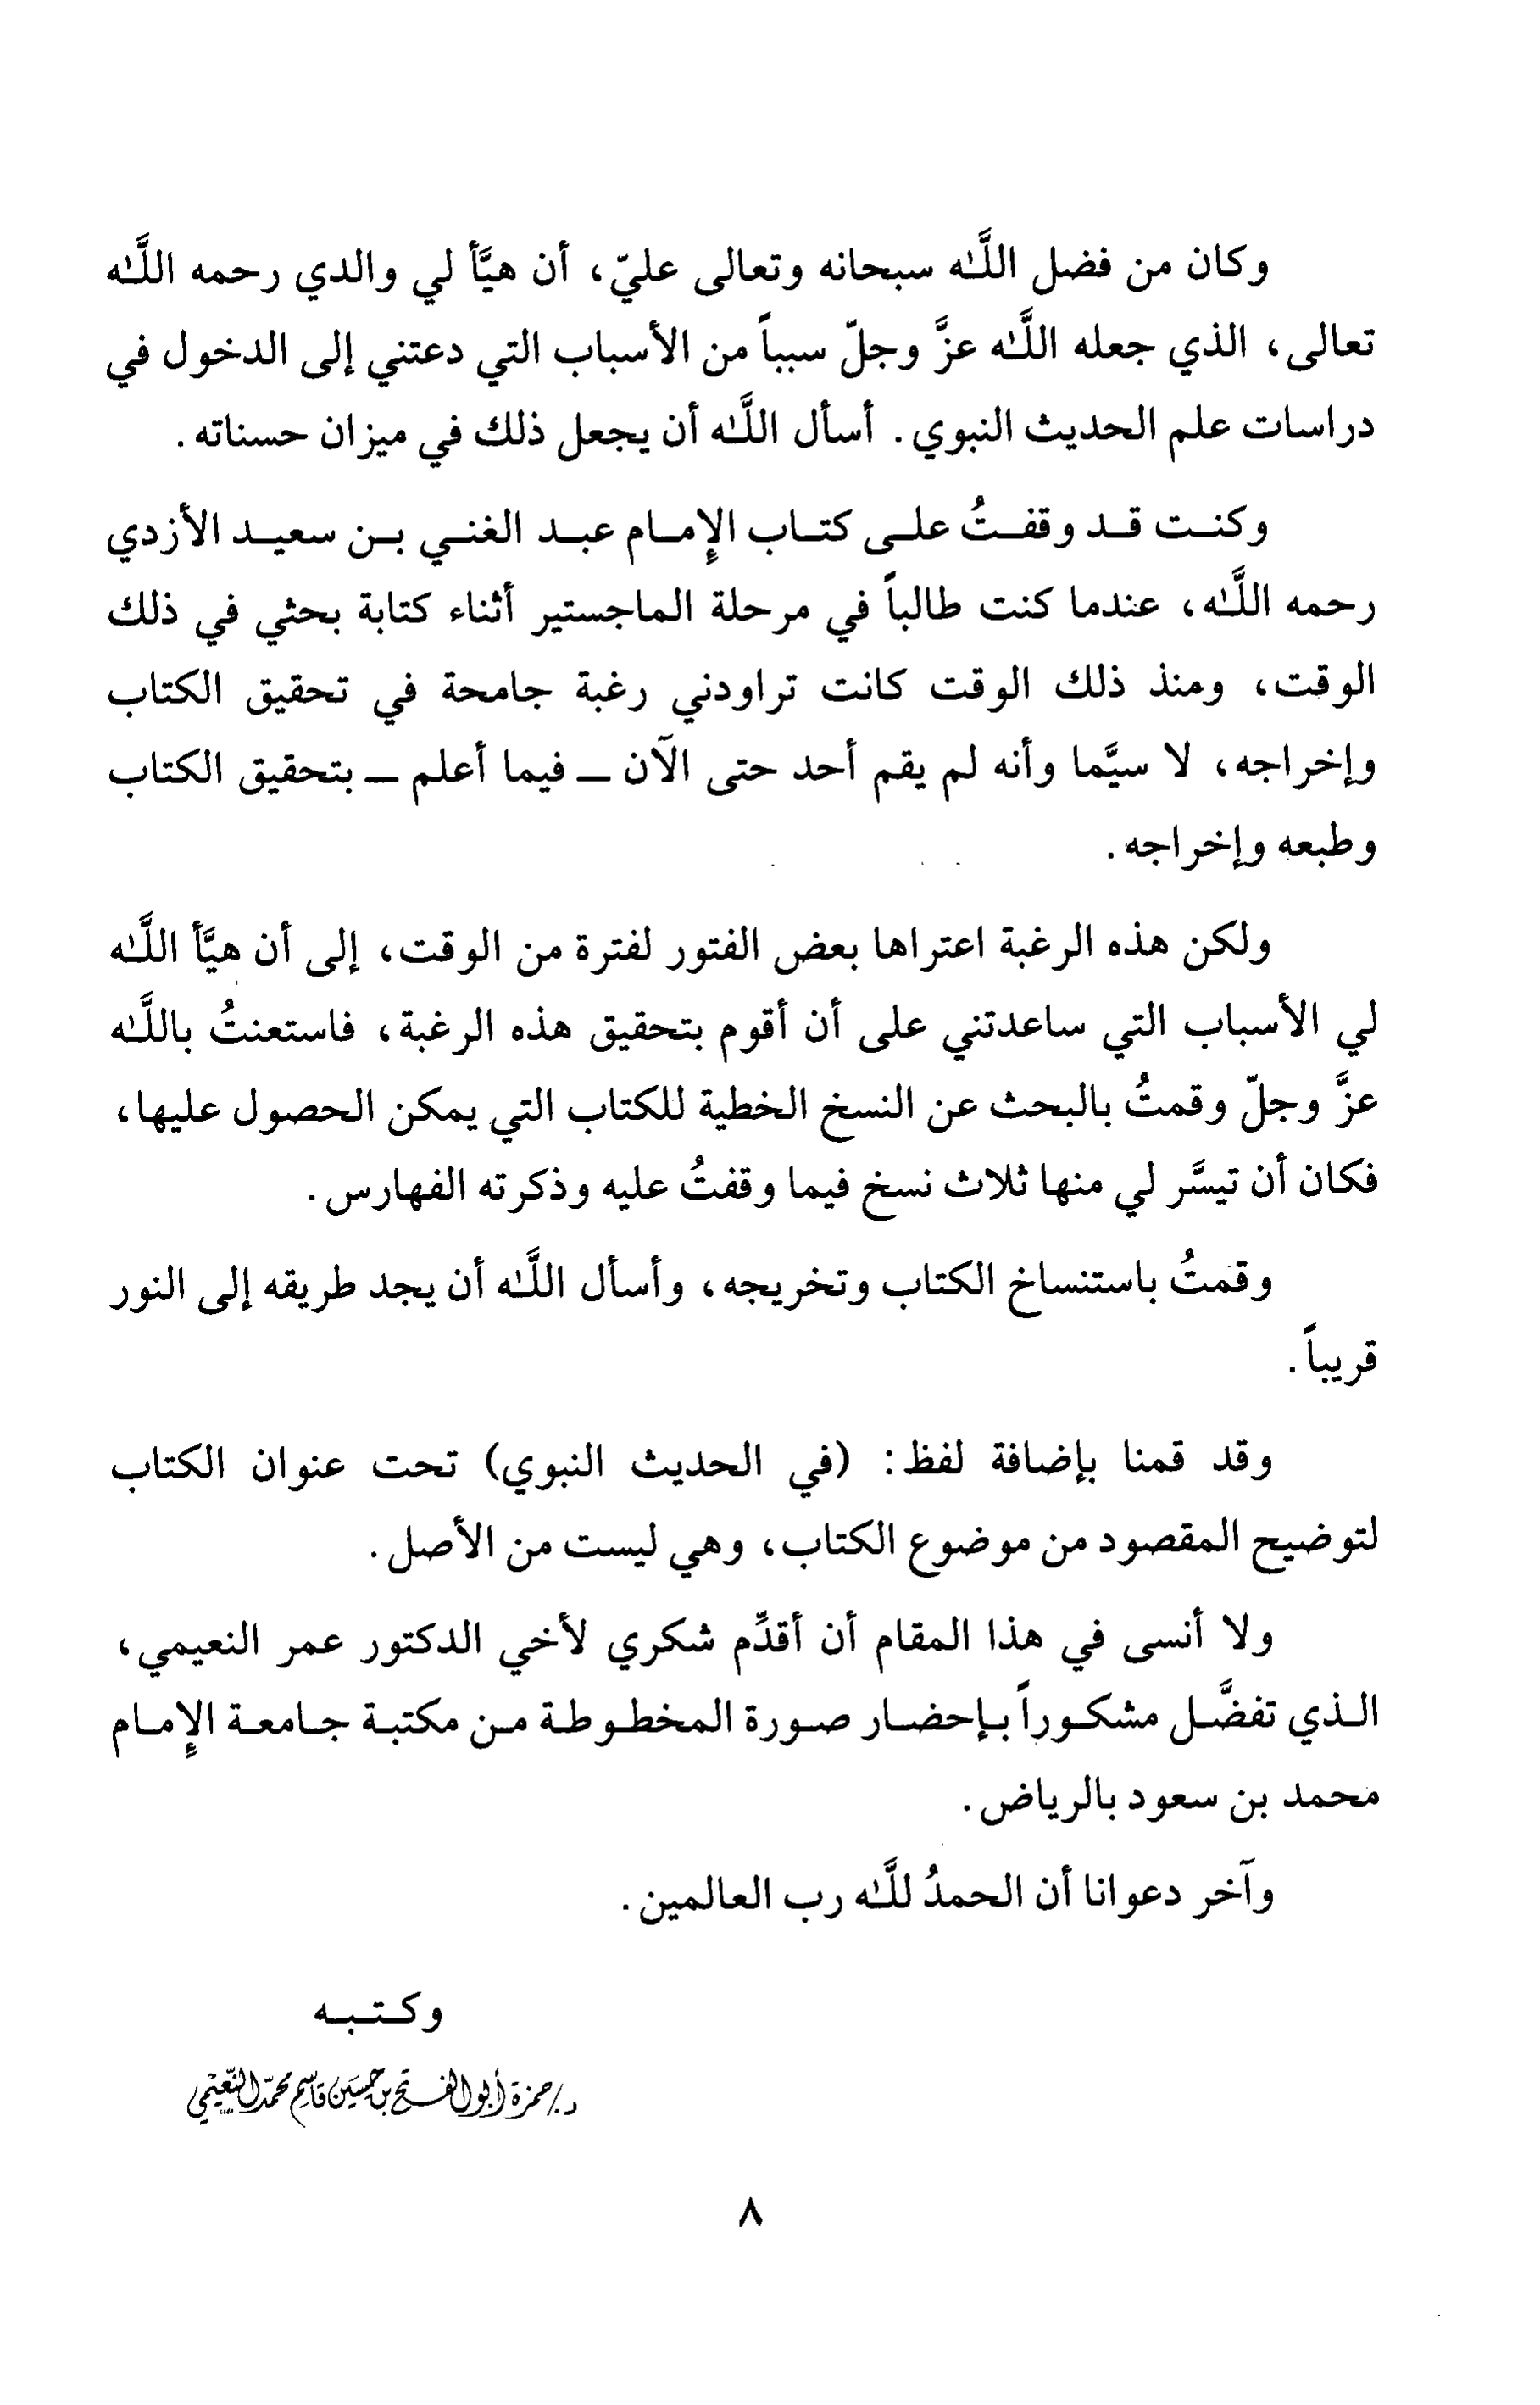 وكان من فضل اللَّه سبحانه وتعالى عليّ، أن هيَّأ لي والدي رحمه اللَّه
تعالى، الذي جعله اللَّه عزَّ وجلّ سبباً من الأسباب التي دعتني إلى الدخول في
دراسات علم الحديث النبوي. أسأل اللَّه أن يجعل ذلك في ميزان حسناته.
وكنت قد وقفتُ على كتاب الإمام عبد الغني بن سعيد الأزدي
رحمه اللَّه، عندما كنت طالباً في مرحلة الماجستير أثناء كتابة بحثي في ذلك
الوقت، ومنذ ذلك الوقت كانت تراودني رغبة جامحة في تحقيق الكتاب
وإخراجه، لا سيَّما وأنه لم يقم أحد حتى الآن ـ فيما أعلم ـ بتحقيق الكتاب
وطبعه وإخراجه.
ولكن هذه الرغبة اعتراها بعض الفتور لفترة من الوقت، إلى أن هيَّأ اللَّه
لي الأسباب التي ساعدتني على أن أقوم بتحقيق هذه الرغبة، فاستعنتُ باللَّه
عزَّ وجلّ وقمتُ بالبحث عن النسخ الخطية للكتاب التي يمكن الحصول عليها،
فكان أن تيسَّر لي منها ثلاث نسخ فيما وقفتُ عليه وذكرته الفهارس.
وقمتُ باستنساخ الكتاب وتخريجه، وأسأل اللَّه أن يجد طريقه إلى النور
قريباً.
وقد قمنا بإضافة لفظ: (في الحديث النبوي) تحت عنوان الكتاب
لتوضيح المقصود من موضوع الكتاب، وهي ليست من الأصل.
ولا أنسى في هذا المقام أن أقدِّم شكري لأخي الدكتور عمر النعيمي،
الذي تفضَّل مشكوراً بإحضار صورة المخطوطة من مكتبة جامعة الإمام
محمد بن سعود بالرياض.
وآخر دعوانا أن الحمدُ للَّه رب العالمين.
وكتبه
د/حمزة أبو الفتح بن حسين قاسم محمّد النّعيمي
٨